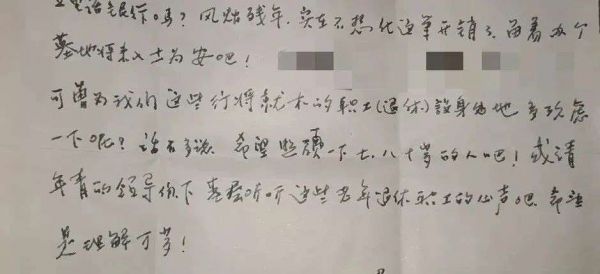 风烛残年，实在不想花这笔开销了，留着办个
墓地将来入土为安吧！
可曾为我们这些行将就木的职工(退休)设身处地多考虑
一下呢？话不多说，希望照顾一下七、八十岁的人吧！或请
年青的领导们下基层听听这些老年退休职工的心声吧，希望
是理解万岁！